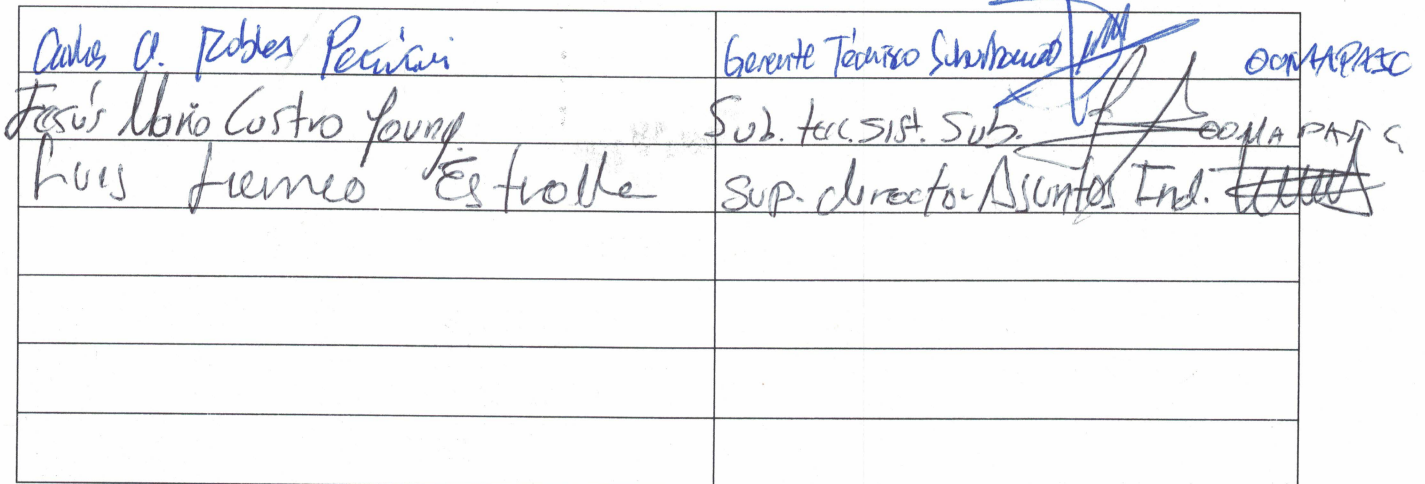 Carlos A. Robles Gerente Técnico OOMAPASC
Jesús Mario Castro Young Sub. tec. sist. Sub. OOMAPASC
Luis Estrella Sup. director Asuntos Ind.